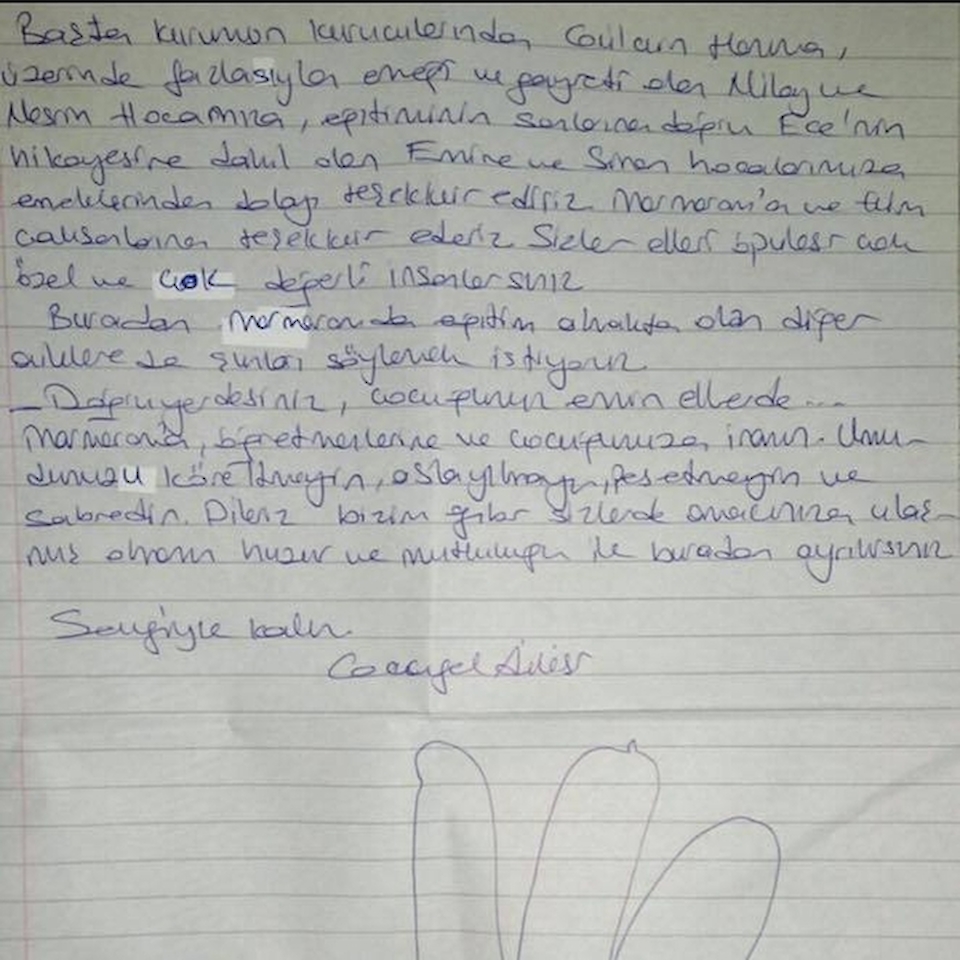 Başta kurumun kurucularından Hanıma,
üzerinde fazlasıyla emeği ve gayreti olan Nilay ve
Nesrin Hocamıza, eğitiminin sonlarına doğru Ece'nin
hikayesine dahil olan Emine ve Sinan hocalarımıza
emeklerinden dolayı teşekkür ederiz Marmaram'a ve tüm
çalışanlarına teşekkür ederiz Sizler elleri öpülesi çok
özel ve çok değerli insanlarsınız
Buradan Marmaramda eğitim almakta olan diğer
ailelere de şunları söylemek istiyoruz
_ Doğru yerdesiniz, çocuğunuz emin ellerde...
Marmaram'a, öğretmenlerine ve çocuğunuza inanın. Umu-
dunuzu köreltmeyin, asla yılmayın, pes etmeyin ve
sabredin. Dileriz bizim gibi sizlerde amacınıza ulaş-
mış olmanın huzur ve mutluluğu ile buradan ayrılırsınız
Sevgiyle kalın.
Ailesi